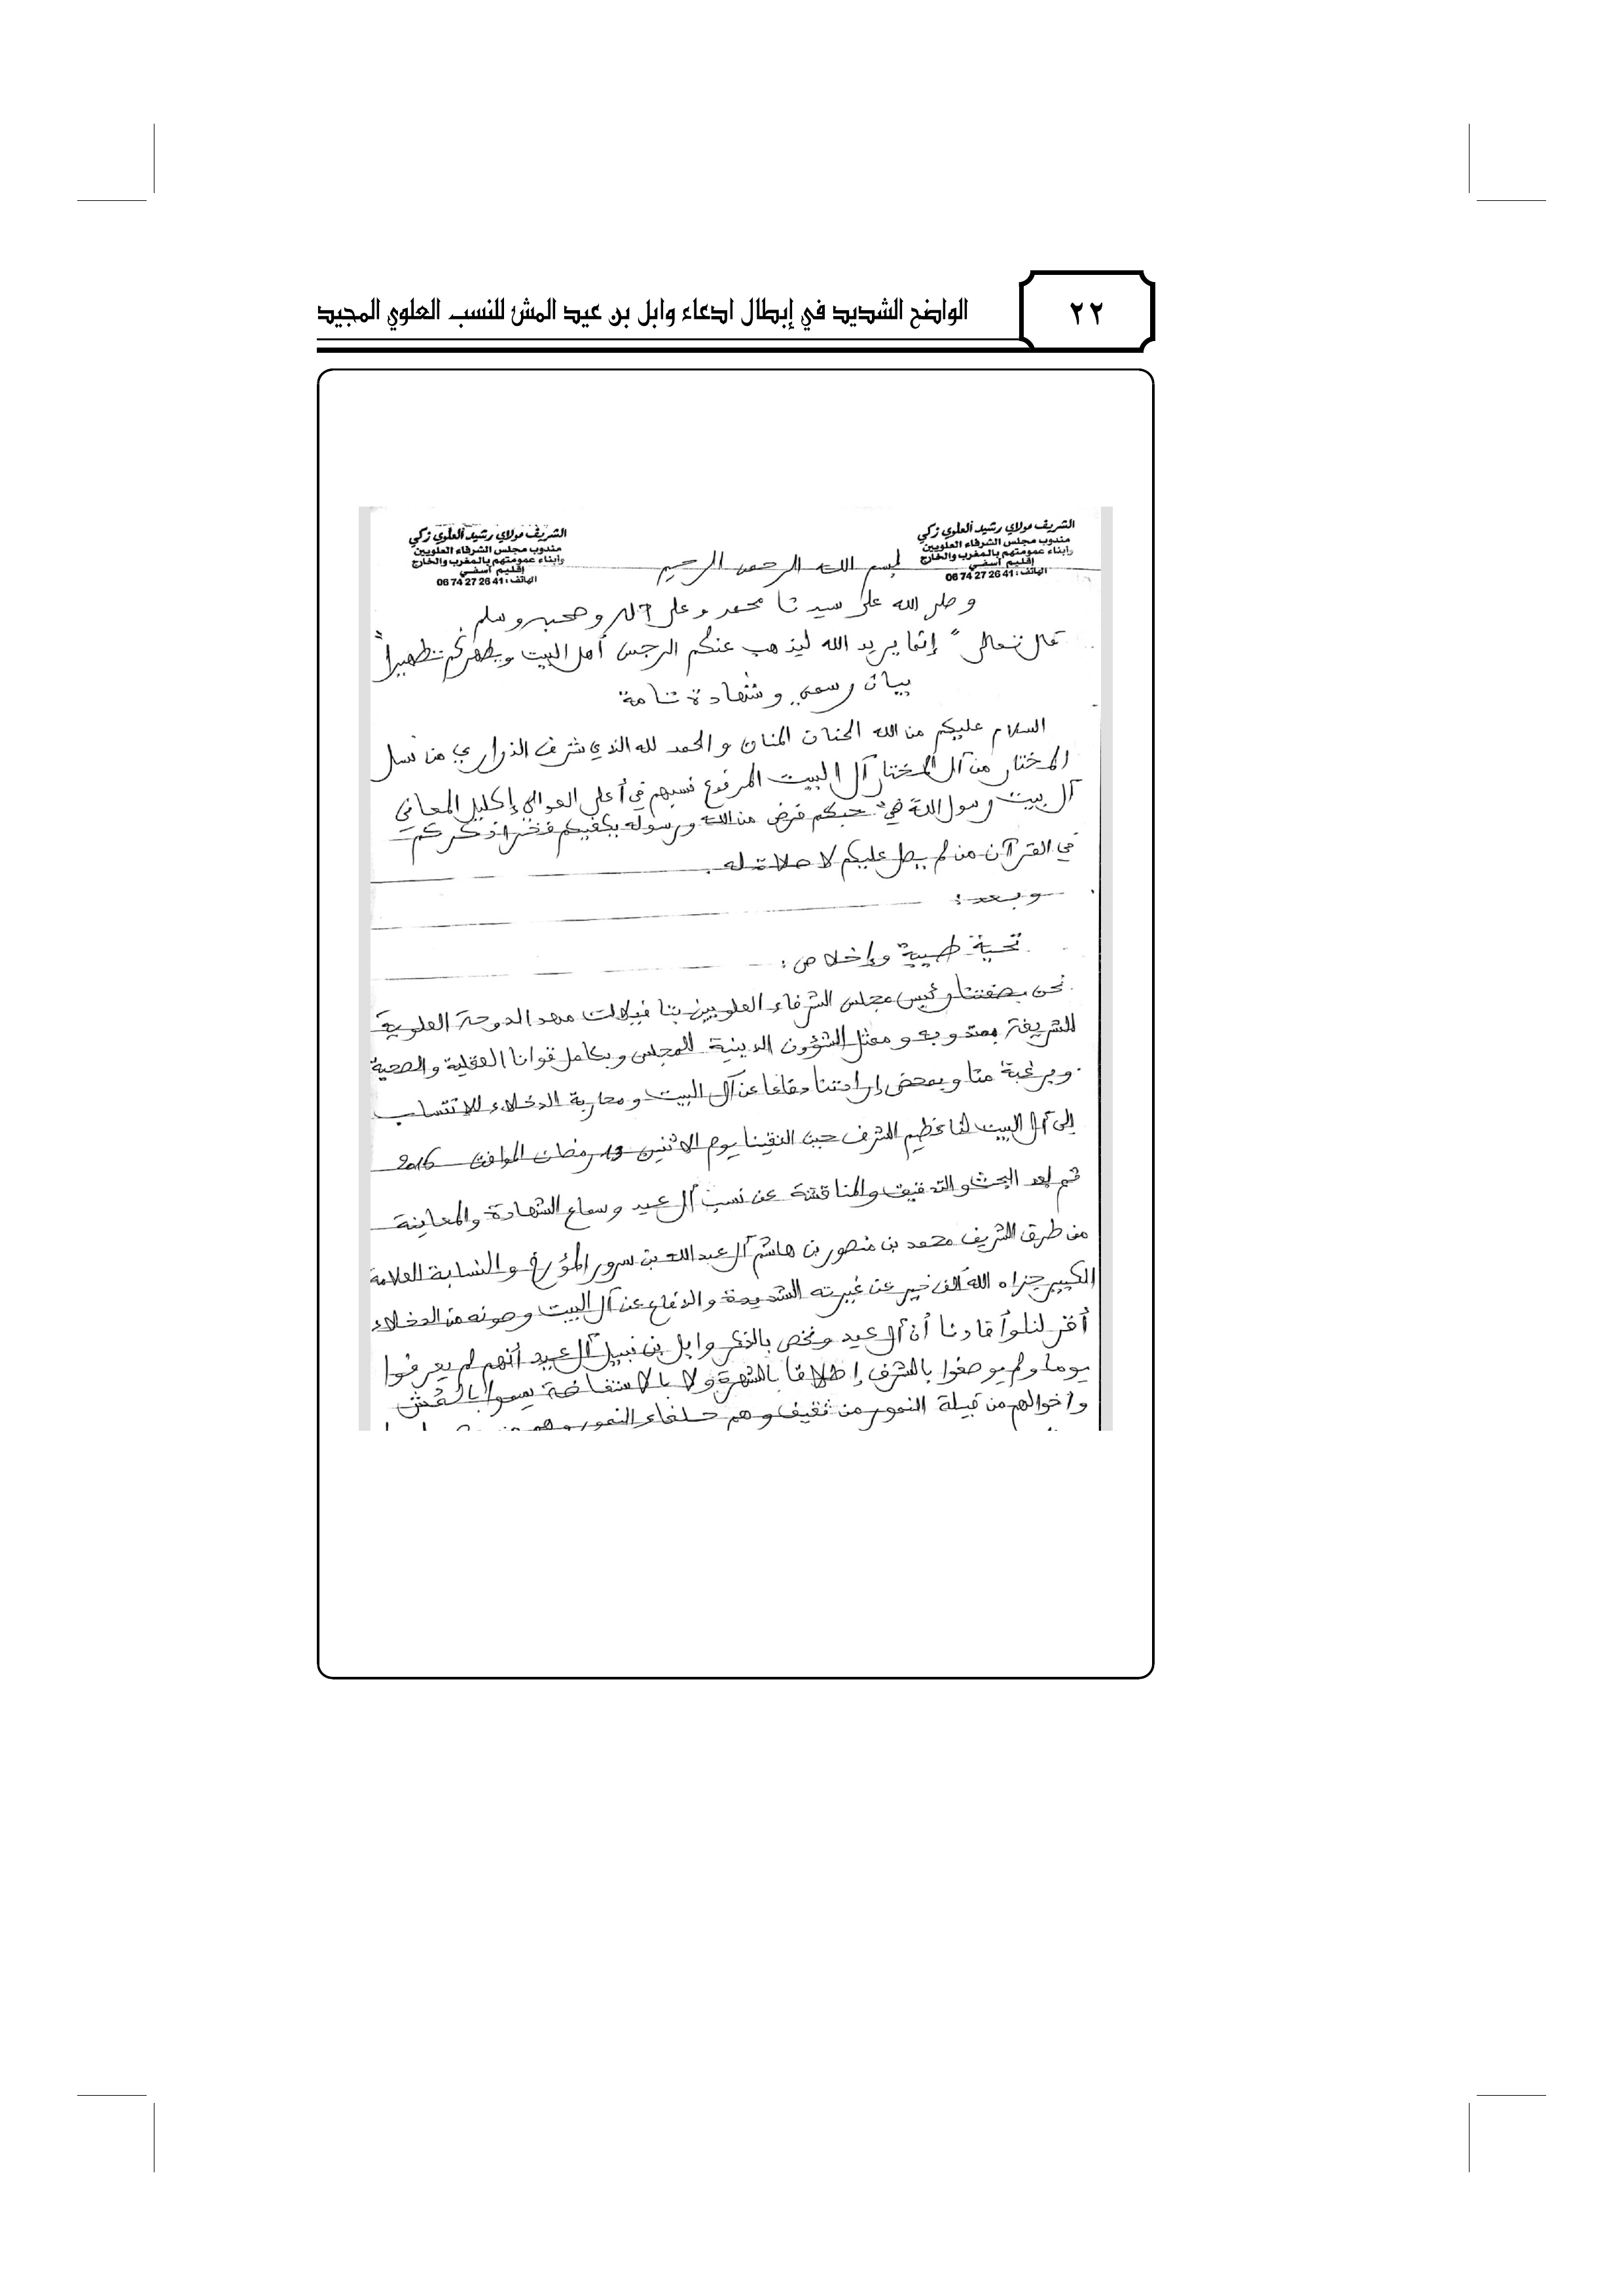 ٢٢
الواضح الشديد في إبطال ادعاء وابل بن عيد المش للنسب العلوي المجيد
الشريف مولاي رشيد العلوي زكي
مندوب مجلس الشرفاء العلويين
وأبناء عمومتهم بالمغرب والخارج
إقليم آسفي
الهاتف : 06 74 27 26 41
الشريف مولاي رشيد العلوي زكي
مندوب مجلس الشرفاء العلويين
وأبناء عمومتهم بالمغرب والخارج
إقليم آسفي
الهاتف : 06 74 27 26 41
بسم الله الرحمن الرحيم
وصلى الله على سيدنا محمد وعلى آله وصحبه وسلم.
قال تعالى " إنما يريد الله ليذهب عنكم الرجس أهل البيت ويطهركم تطهيراً "
بيان رسمي وشهادة تامة
السلام عليكم من الله الحنان المنان والحمد لله الذي شرف الذراري من نسل
المختار من آل المختار آل البيت المرفوع نسبهم في أعلى العوالي إكليل المعاني
آل بيت رسول الله حبكم فرض من الله ورسوله يكفيكم فخرا ذكركم
في القرآن من لم يصل عليكم لا صلاة له.
وبعد :
تحية طيبة وإخلاص :
نحن بصفتنا رئيس مجلس الشرفاء العلويين بتافيلالت مهد الدوحة العلوية
الشريفة بمندوبه وممثل الشؤون الدينية للمجلس وبكامل قوانا العقلية والصحية
وبرغبة منا وبمحض إرادتنا دفاعا عن آل البيت ومحاربة الدخلاء للانتساب
إلى آل البيت لنا عظيم الشرف حين التقينا يوم الاثنين رمضان الموافق 2016
ثم بعد البحث والتدقيق والمناقشة عن نسب آل عيد وسماع الشهادة والمعاينة
من طرف الشريف محمد بن منصور بن هاشم آل عبدالله بن سرور المؤرخ والنسابة العلامة
الكبير جزاه الله ألف خير عن غيرته الشديدة والدفاع عن آل البيت وصونه من الدخلاء
أقر لنا وأفادنا أن آل عيد ونخص بالذكر وابل بن نبيل آل عيد أنهم لم يعرفوا
يوما ولم يوصفوا بالشرف إطلاقا بالشهرة ولا بالاستفاضة يسموا بالمش
وأخوالهم من قبيلة النمور من ثقيف وهم حلفاء النمور وهم